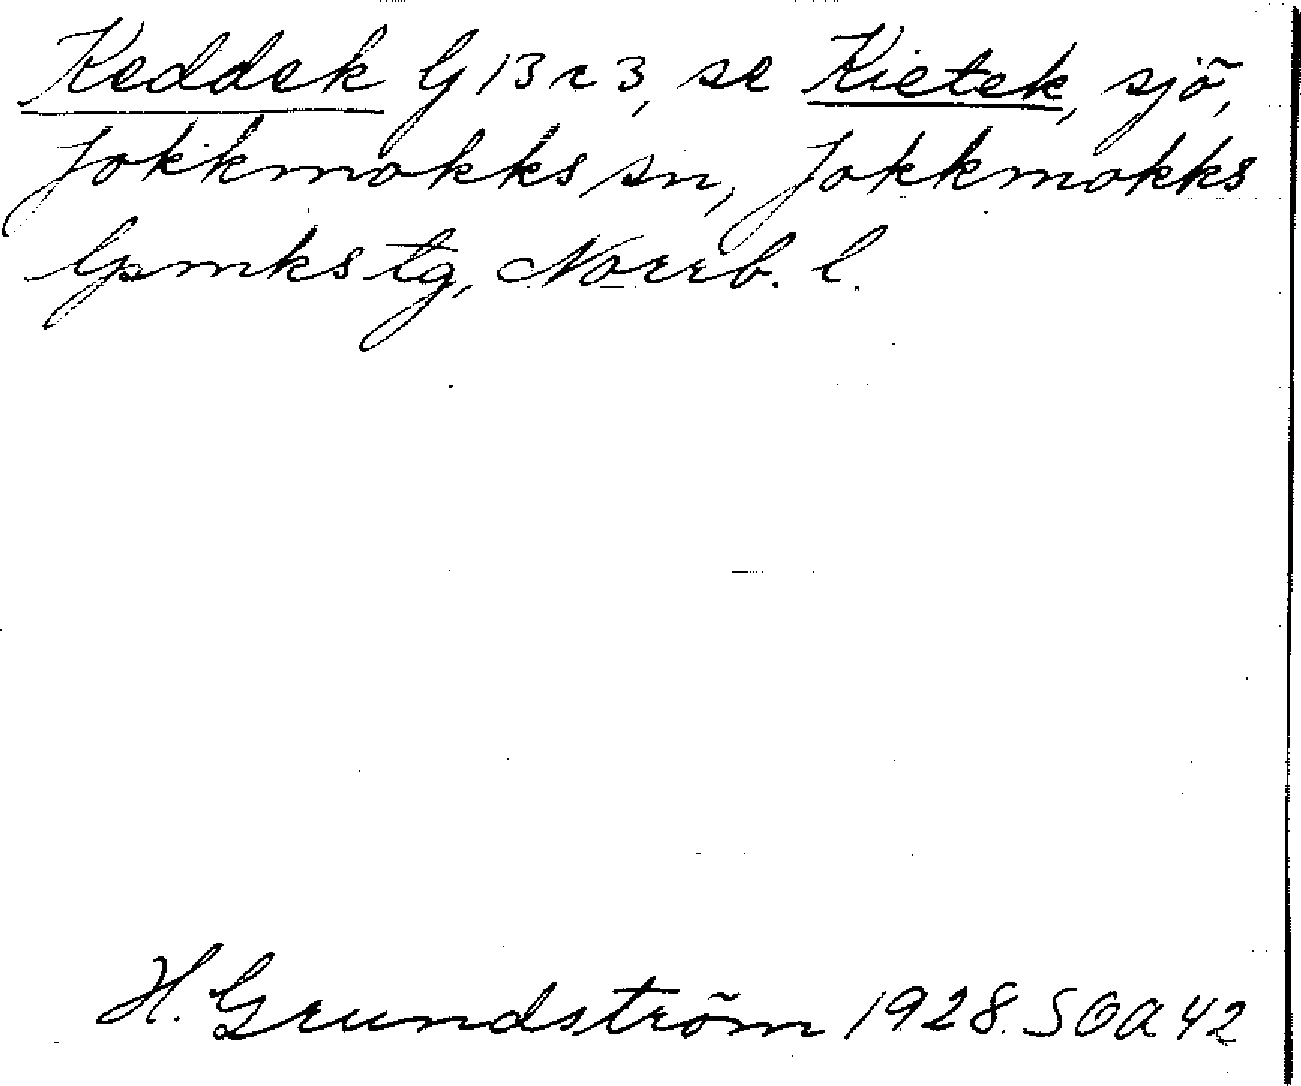 Keddek G 13 r 3, se Kietek, sjö,
Jokkmokks sn, Jokkmokks
lpmks tg, Norrb. l.
H. Grundström 1928. SOA 42